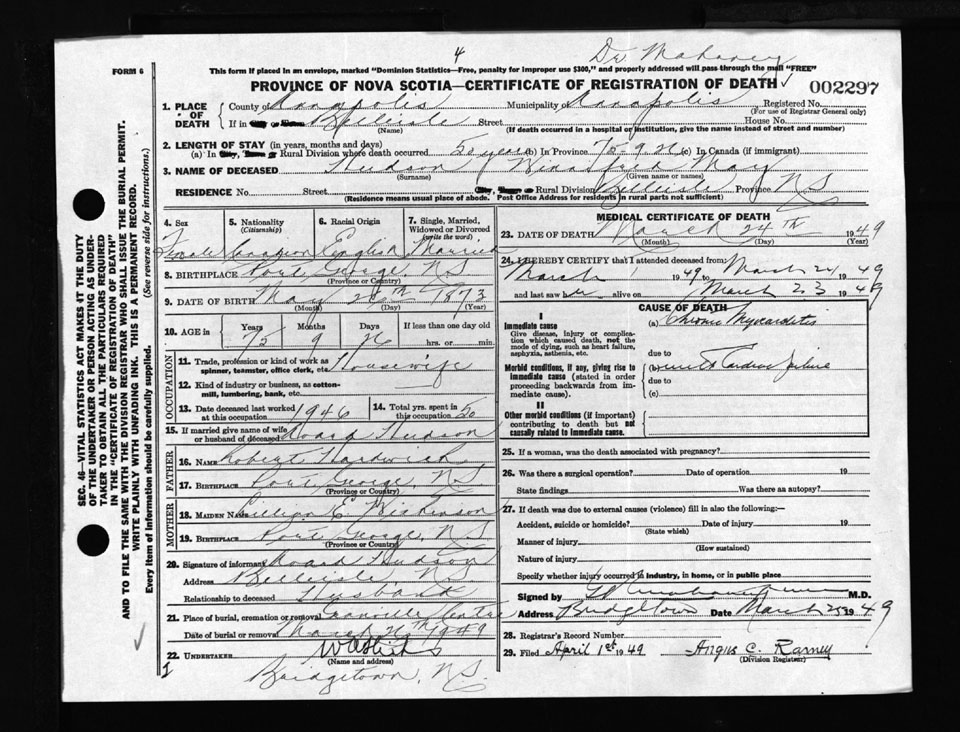 4
Dr. Mahaney
FORM 6
This form if placed in an envelope, marked "Dominion Statistics—Free, penalty for improper use $300," and properly addressed will pass through the mail "FREE"
PROVINCE OF NOVA SCOTIA—CERTIFICATE OF REGISTRATION OF DEATH
002297
1. PLACE OF DEATH
County of Annapolis Municipality of Annapolis Registered No.
(For use of Registrar General only)
If in City or Town Belleisle Street House No.
(Name) (If death occurred in a hospital or institution, give the name instead of street and number)
2. LENGTH OF STAY (in years, months and days)
(a) In City, Town or Rural Division where death occurred 50 years (b) In Province 75-9-26 (c) In Canada (if immigrant)
3. NAME OF DECEASED Hudson Mary
(Surname) (Given name or names)
RESIDENCE No. Street City, Town or Rural Division Belleisle Province NS
(Residence means usual place of abode. Post Office Address for residents in rural parts not sufficient)
4. Sex
Female
5. Nationality (Citizenship)
Canadian
6. Racial Origin
English
7. Single, Married, Widowed or Divorced (write the word)
Married
8. BIRTHPLACE Port George, N.S.
(Province or Country)
9. DATE OF BIRTH May 26th 1873
(Month) (Day) (Year)
10. AGE in
Years
75
Months
9
Days
26
If less than one day old
hrs. or min.
OCCUPATION
11. Trade, profession or kind of work as spinner, teamster, office clerk, etc. Housewife
12. Kind of industry or business, as cotton-mill, lumbering, bank, etc.
13. Date deceased last worked at this occupation 1946
14. Total yrs. spent in this occupation 50
15. If married give name of wife or husband of deceased Hudson
FATHER
16. NAME Robert Hardwick
17. BIRTHPLACE Port George, N.S.
(Province or Country)
MOTHER
18. MAIDEN NAME
19. BIRTHPLACE Port George, N.S.
(Province or Country)
20. Signature of informant Hudson
Address Belleisle, N.S.
Relationship to deceased Husband
21. Place of burial, cremation or removal Granville Centre
Date of burial or removal March 26th 1949
22. UNDERTAKER
(Name and address)
Bridgetown, N.S.
MEDICAL CERTIFICATE OF DEATH
23. DATE OF DEATH March 24TH 1949
(Month) (Day) (Year)
24. I HEREBY CERTIFY that I attended deceased from:
March 1 1949 to March 24 1949
and last saw her alive on March 23 1949
CAUSE OF DEATH
I
Immediate cause
Give disease, injury or complication which caused death, not the mode of dying, such as heart failure, asphyxia, asthenia, etc.
(a) Chronic Myocarditis
due to
Morbid conditions, if any, giving rise to immediate cause (stated in order proceeding backwards from immediate cause).
(b) Cardiac Failure
due to
(c)
II
Other morbid conditions (if important) contributing to death but not causally related to immediate cause.
25. If a woman, was the death associated with pregnancy?
26. Was there a surgical operation? Date of operation 19
State findings Was there an autopsy?
27. If death was due to external causes (violence) fill in also the following:—
Accident, suicide or homicide? Date of injury 19
(State which)
Manner of injury
(How sustained)
Nature of injury
Specify whether injury occurred in industry, in home, or in public place
Signed by M.D.
Address Bridgetown Date March 25 1949
28. Registrar's Record Number
29. Filed April 1st 1949 Angus C. Ramey
(Division Registrar)
SEC. 46—VITAL STATISTICS ACT MAKES IT THE DUTY
OF THE UNDERTAKER OR PERSON ACTING AS UNDER-
TAKER TO OBTAIN ALL THE PARTICULARS REQUIRED
IN THE "CERTIFICATE OF REGISTRATION OF DEATH"
AND TO FILE THE SAME WITH THE DIVISION REGISTRAR WHO SHALL ISSUE THE BURIAL PERMIT.
WRITE PLAINLY WITH UNFADING INK. THIS IS A PERMANENT RECORD.
Every item of information should be carefully supplied. (See reverse side for instructions.)